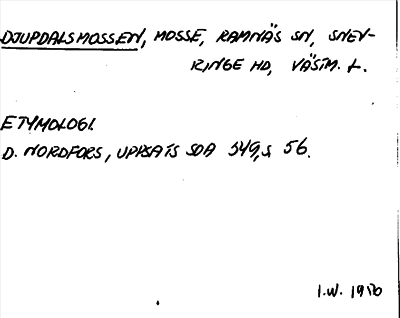 DJUPDALSMOSSEN, MOSSE, RAMNÄS SN, SNEV-
RINGE HD, VÄSTM. L.
ETYMOLOGI.
D. NORDFORS, UPPSATS SOA 549, S 56.
I.W. 1970